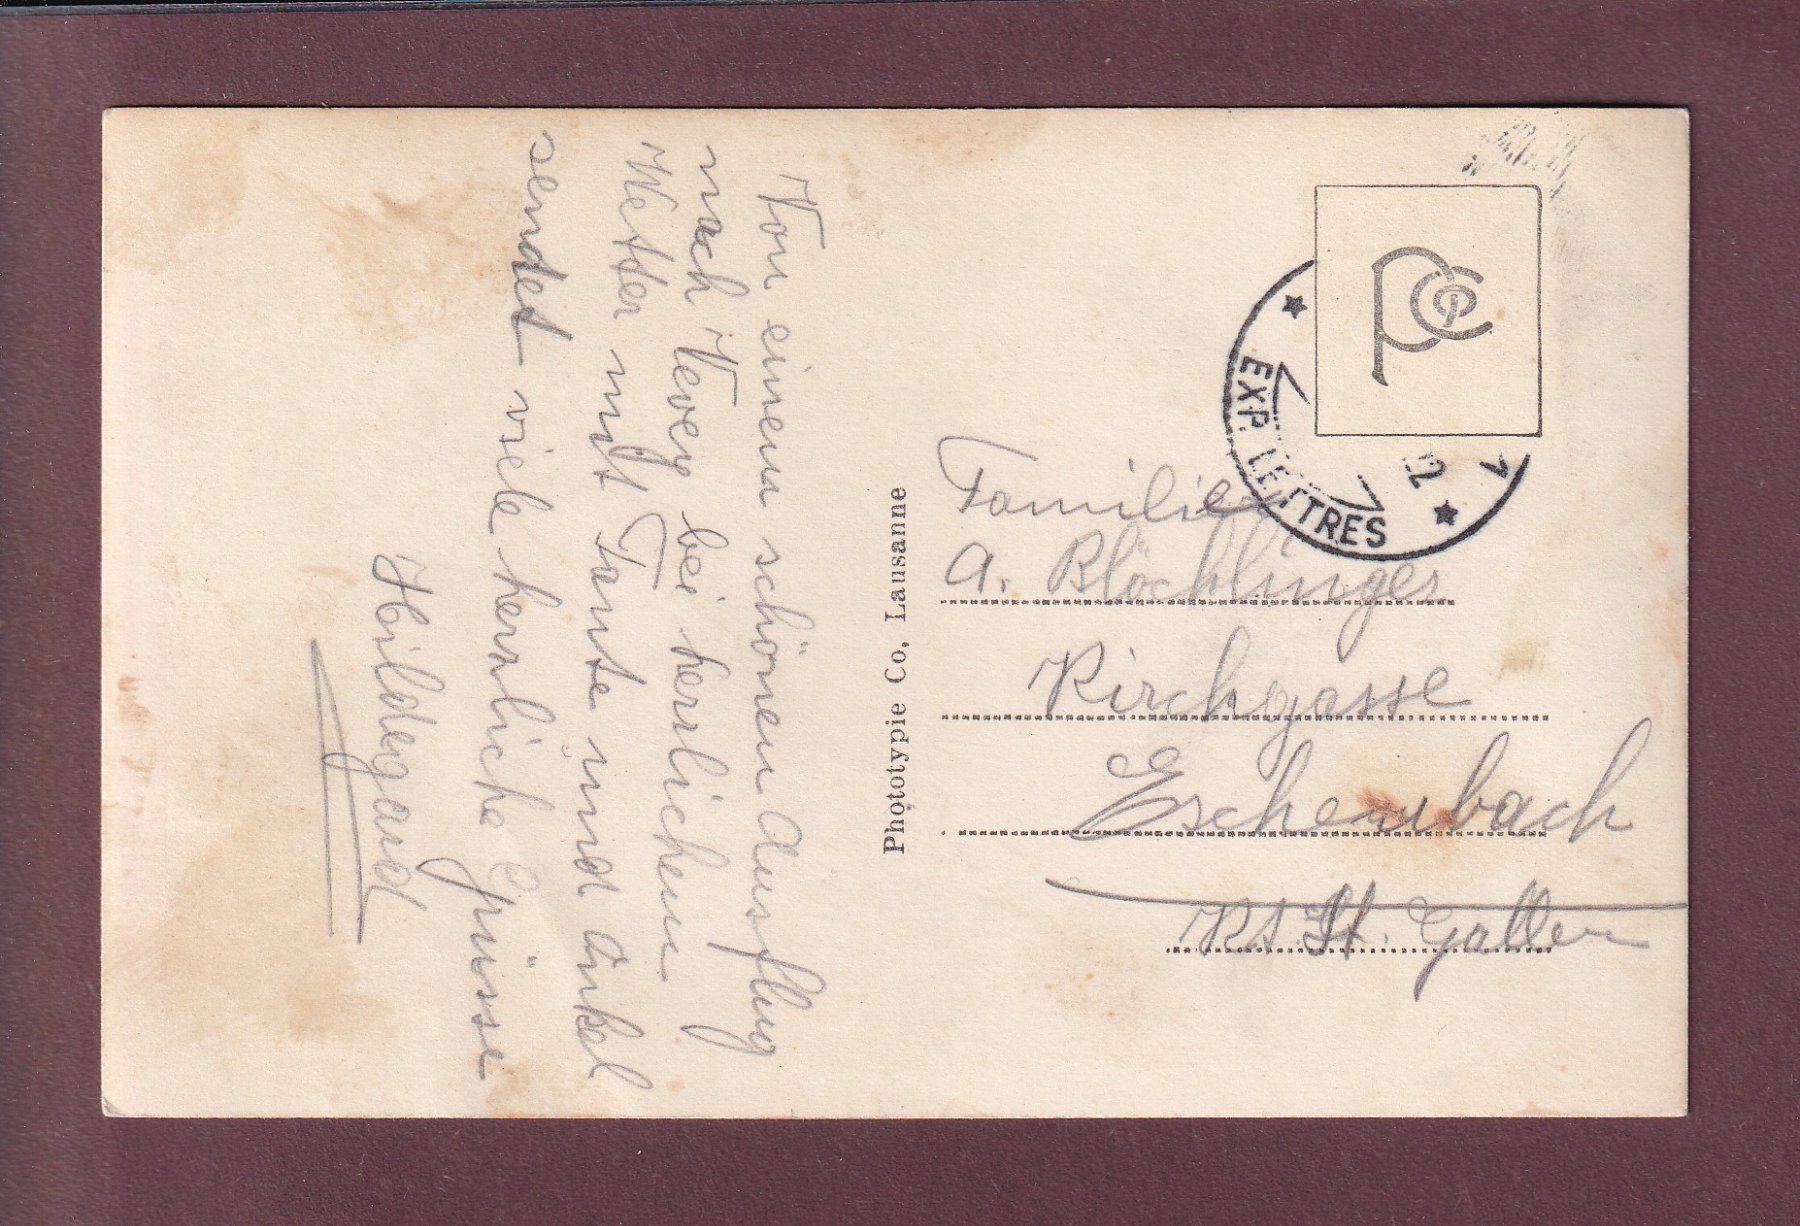 Von einem schönen Ausflug
nach Vevey bei herrlichem
Wetter mit Tante und Onkel
sendet viele herzliche Grüsse
Hildegard
Phototypie Co, Lausanne
EXP. LETTRES
Familie
A. Blöchlinger
Kirchgasse
Eschenbach
Kt St. Gallen